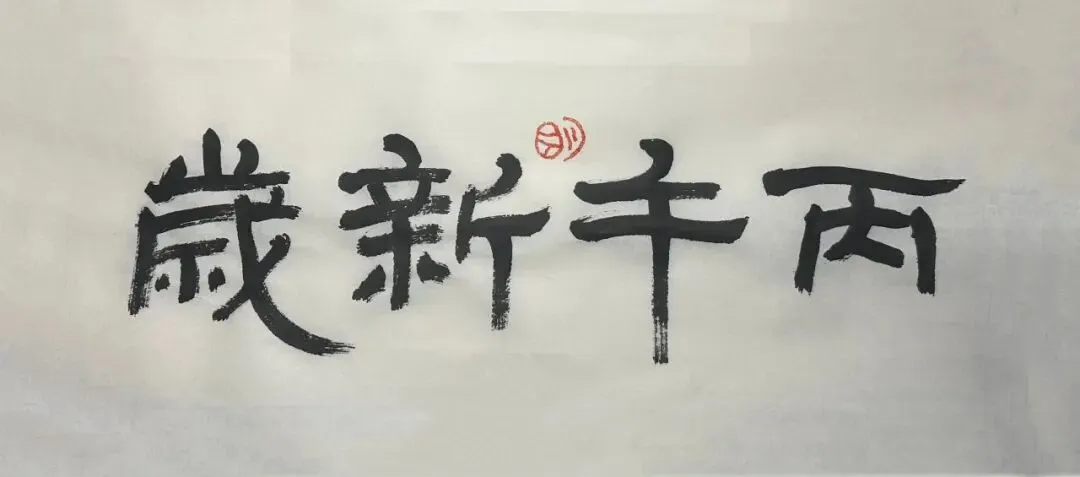 丙午新歲